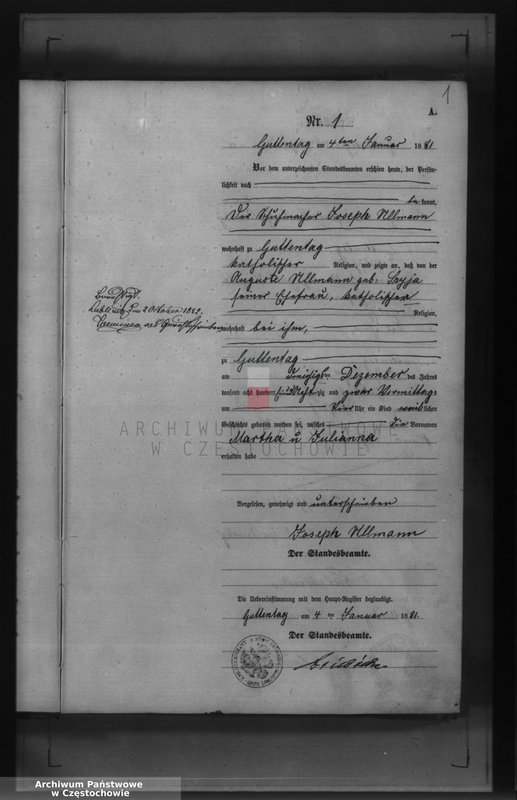 1
A.
Nr. 1
Guttentag am 4ten Januar 1881
Vor dem unterzeichneten Standesbeamten erschien heute, der Persön-
lichkeit nach
bekannt,
Der Schuhmacher Joseph Ullmann
wohnhaft zu Guttentag
katholischer Religion, und zeigte an, daß von der
Auguste Ullmann geb.
seiner Ehefrau, katholischer
Religion,
wohnhaft bei ihm,
zu Guttentag
am Dezember des Jahres
tausend acht hundert achtzig und zwar Vormittags
um Vier Uhr ein Kind weiblichen
Geschlechts geboren worden sei, welches die Vornamen
Martha u Julianna
erhalten habe
Vorgelesen, genehmigt und unterschrieben
Joseph Ullmann
Der Standesbeamte.
Die Uebereinstimmung mit dem Haupt-Register beglaubigt.
Guttentag am 4 ten Januar 1881.
Der Standesbeamte.
ARCHIWUM PAŃSTWOWE
W CZĘSTOCHOWIE
Archiwum Państwowe
w Częstochowie